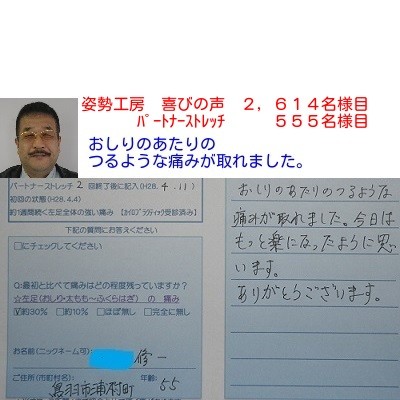 姿勢工房 喜びの声 2,614名様目
パートナーストレッチ 555名様目
おしりのあたりの
つるような痛みが取れました。
パートナーストレッチ2回終了後に記入(H28.4.11)
初回の状態(H28.4.4)
約1週間続く左足全体の強い痛み【カイロプラクティック受診済み】
下記の質問にお答えください
□にチェックしてください
○最初と比べて痛みはどの程度残っていますか?
☆左足(おしり・太もも～ふくらはぎ)の 痛み
☑約30% □約10% □ほぼ無し □完全に無し
お名前(ニックネーム可): 修一
ご住所(市町村名): 年齢: 55
鳥羽市浦村町
おしりのあたりのつるような
痛みが取れました。今日は
もっと楽になったように思
います。
ありがとうございます。